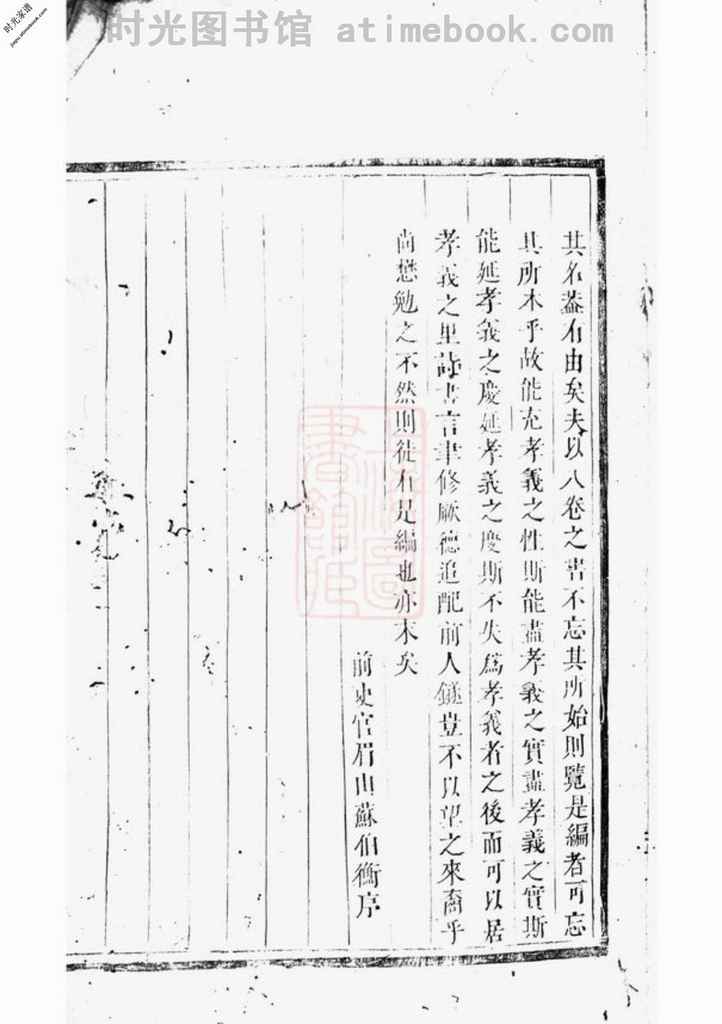 时光图书馆 atimebook.com
时光家谱
jiapu.atimebook.com
其名蓋有由矣夫以八卷之書不忘其所始則覽是編者可忘
其所本乎故能充孝義之性斯能盡孝義之實盡孝義之實斯
能延孝義之慶延孝義之慶斯不失爲孝義者之後而可以居
孝義之里詩書言聿修厥德追配前人鐩豈不以望之來裔乎
尚懋勉之不然則徒有是編也亦末矣
前史官眉山蘇伯衡序